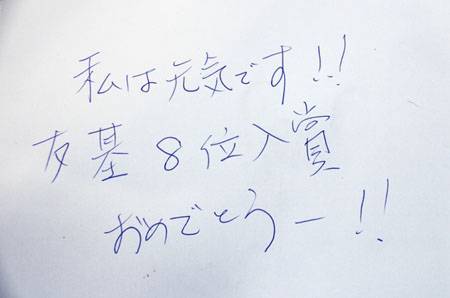 私は元気です!!
友基 8位入賞
おめでとうー!!